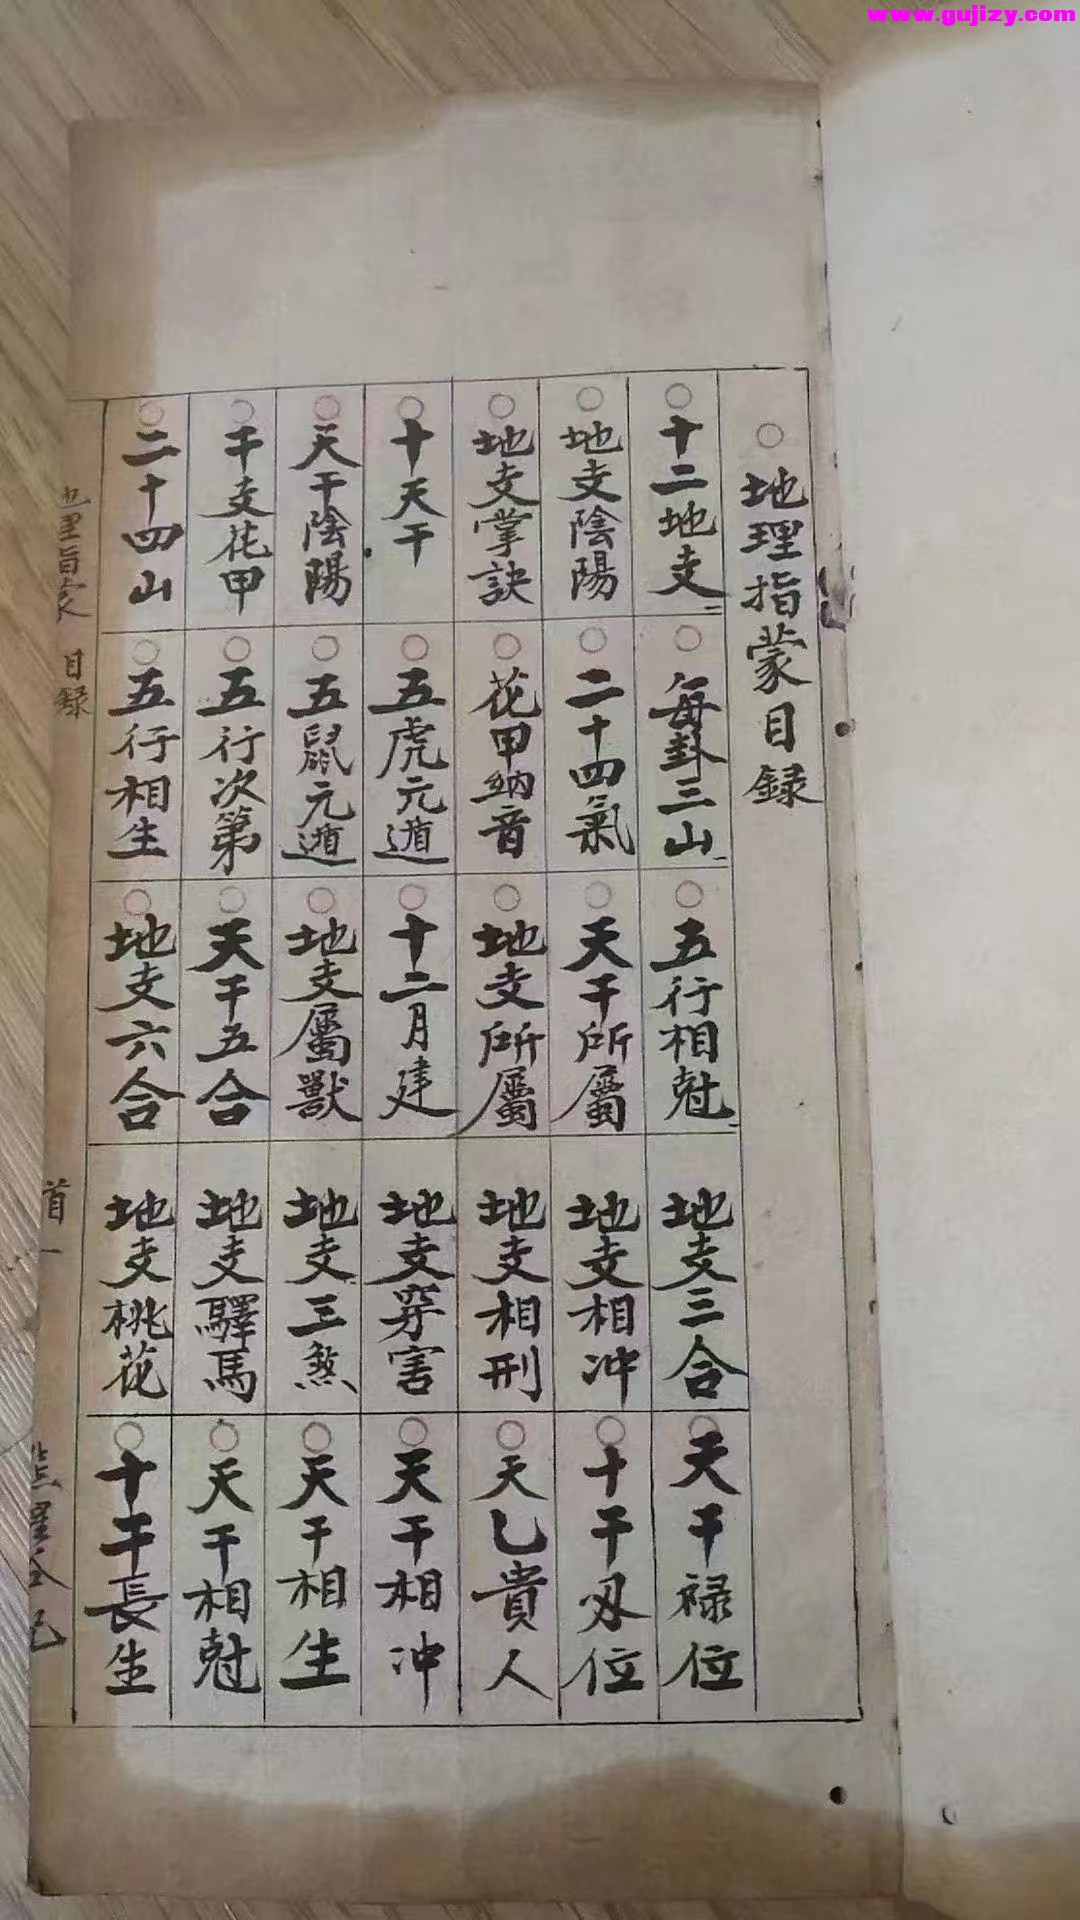 www.gujizy.com
地理指蒙目録
十二地支
地支陰陽
地支掌訣
十天干
天干陰陽
干支花甲
二十四山
每卦三山
二十四氣
花甲納音
五虎元遁
五鼠元遁
五行次第
五行相生
五行相尅
天干所屬
地支所屬
十二月建
地支屬獸
天干五合
地支六合
地支三合
地支相冲
地支相刑
地支穿害
地支三煞
地支驛馬
地支桃花
天干禄位
十干刃位
天乙貴人
天干相冲
天干相生
天干相尅
十干長生
地理指蒙
目録
首一